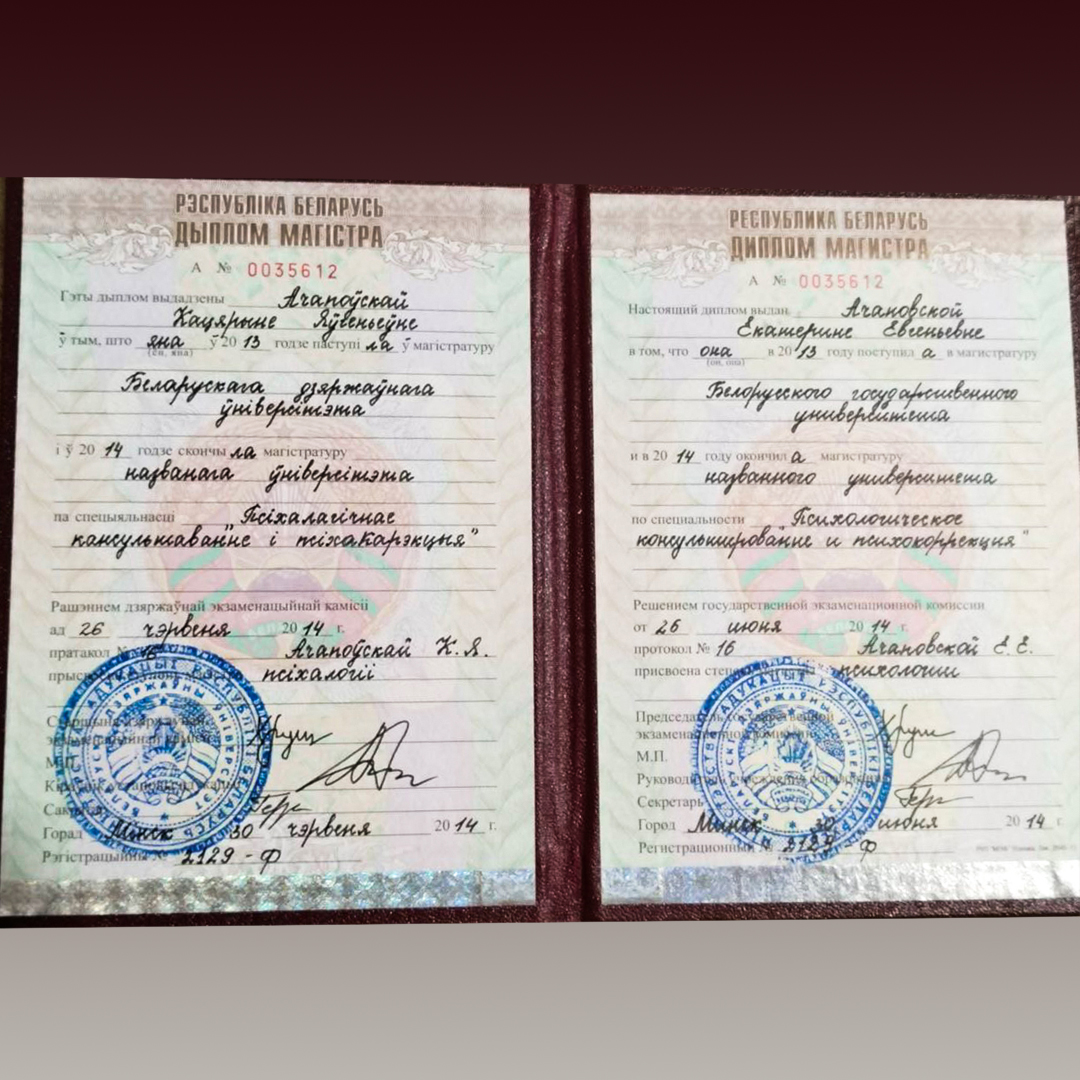 РЭСПУБЛІКА БЕЛАРУСЬ
ДЫПЛОМ МАГІСТРА
А № 0035612
Гэты дыплом выдадзены Ачапоўскай
Кацярыне Яўгеньеўне
ў тым, што яна ў 20 13 годзе паступі ла ў магістратуру
(ён, яна)
Беларускага дзяржаўнага
ўніверсітэта
і ў 20 14 годзе скончы ла магістратуру
названага ўніверсітэта
па спецыяльнасці "Псіхалагічнае
кансультаванне і псіхакарэкцыя"
Рашэннем дзяржаўнай экзаменацыйнай камісіі
ад 26 чэрвеня 20 14 г.
пратакол № 16 Ачапоўскай К. Я.
псіхалогіі
Старшыня дзяржаўнай
экзаменацыйнай камісіі
М.П.
Горад Мінск 30 чэрвеня 20 14 г.
Рэгістрацыйны № 2129 - Ф
РЕСПУБЛИКА БЕЛАРУСЬ
ДИПЛОМ МАГИСТРА
А № 0035612
Настоящий диплом выдан Ачановской
Екатерине Евгеньевне
в том, что она в 20 13 году поступил а в магистратуру
(он, она)
Белорусского государственного
университета
и в 20 14 году окончил а магистратуру
названного университета
по специальности "Психологическое
консультирование и психокоррекция"
Решением государственной экзаменационной комиссии
от 26 июня 20 14 г.
протокол № 16 Ачановской Е. Е.
присвоена степень психологии
Председатель государственной
экзаменационной комиссии
М.П.
Руководитель учреждения образования
Секретарь
Город Минск 30 июня 20 14 г.
Регистрационный № 2129 Ф